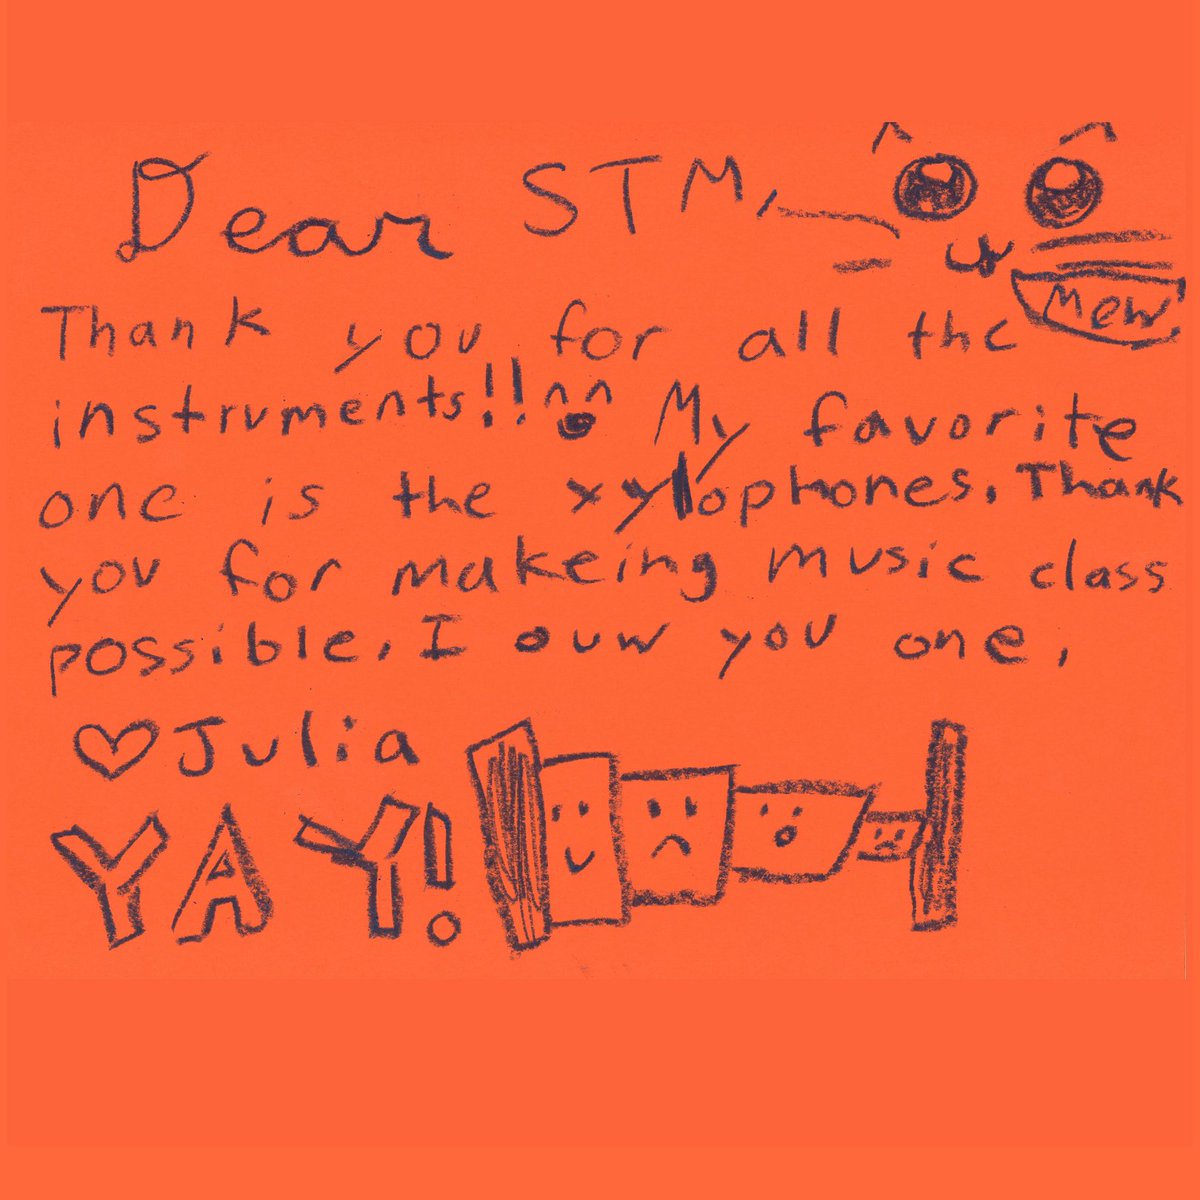 Dear STM,
Mew
Thank you for all the
instruments!!
My favorite
one is the xylophones. Thank
you for makeing music class
possible. I ouw you one,
♡Julia
YAY!